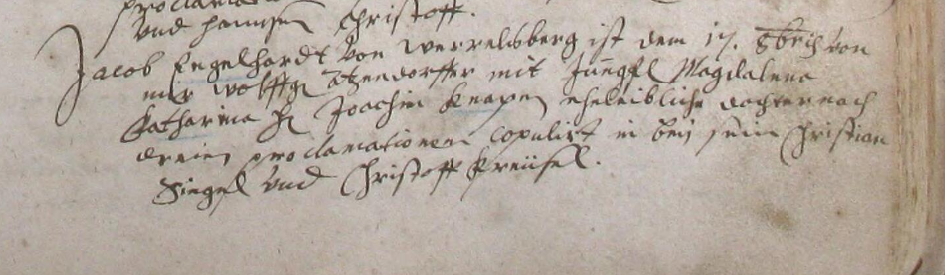 proclamation
Vnd Hannßen Christoff.
Jacob Engelhardt Von Werrelsberg ist dem 17. 8bris von
mir Wolffg. mit Jungfl Magdalena
Catharina H Joachim Knapen eheleibliche dochter nach
dreien proclamationen copulirt in bey sein Christian
Siegel Vnd Christoff Preüsel.